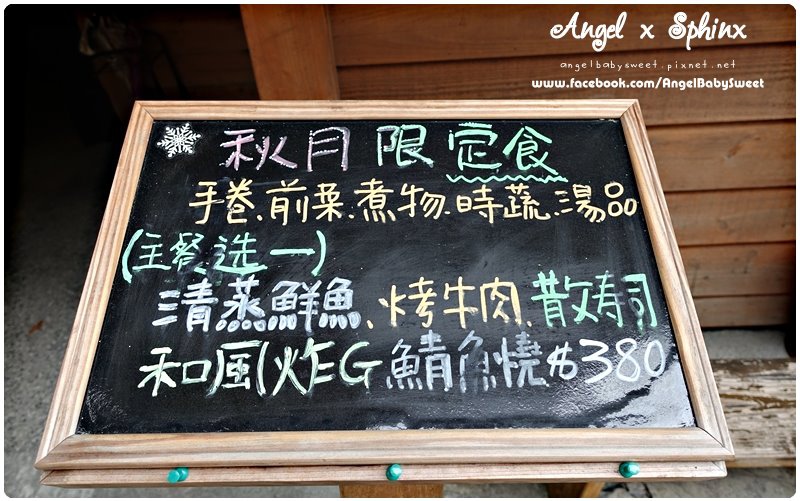 Angel x Sphinx
angelbabysweet.pixnet.net
www.facebook.com/AngelBabySweet
秋月限定食
手卷.前菜.煮物.時蔬.湯品
(主餐选一)
清蒸鮮魚、烤牛肉、散寿司
和風炸G.鯖魚燒$380